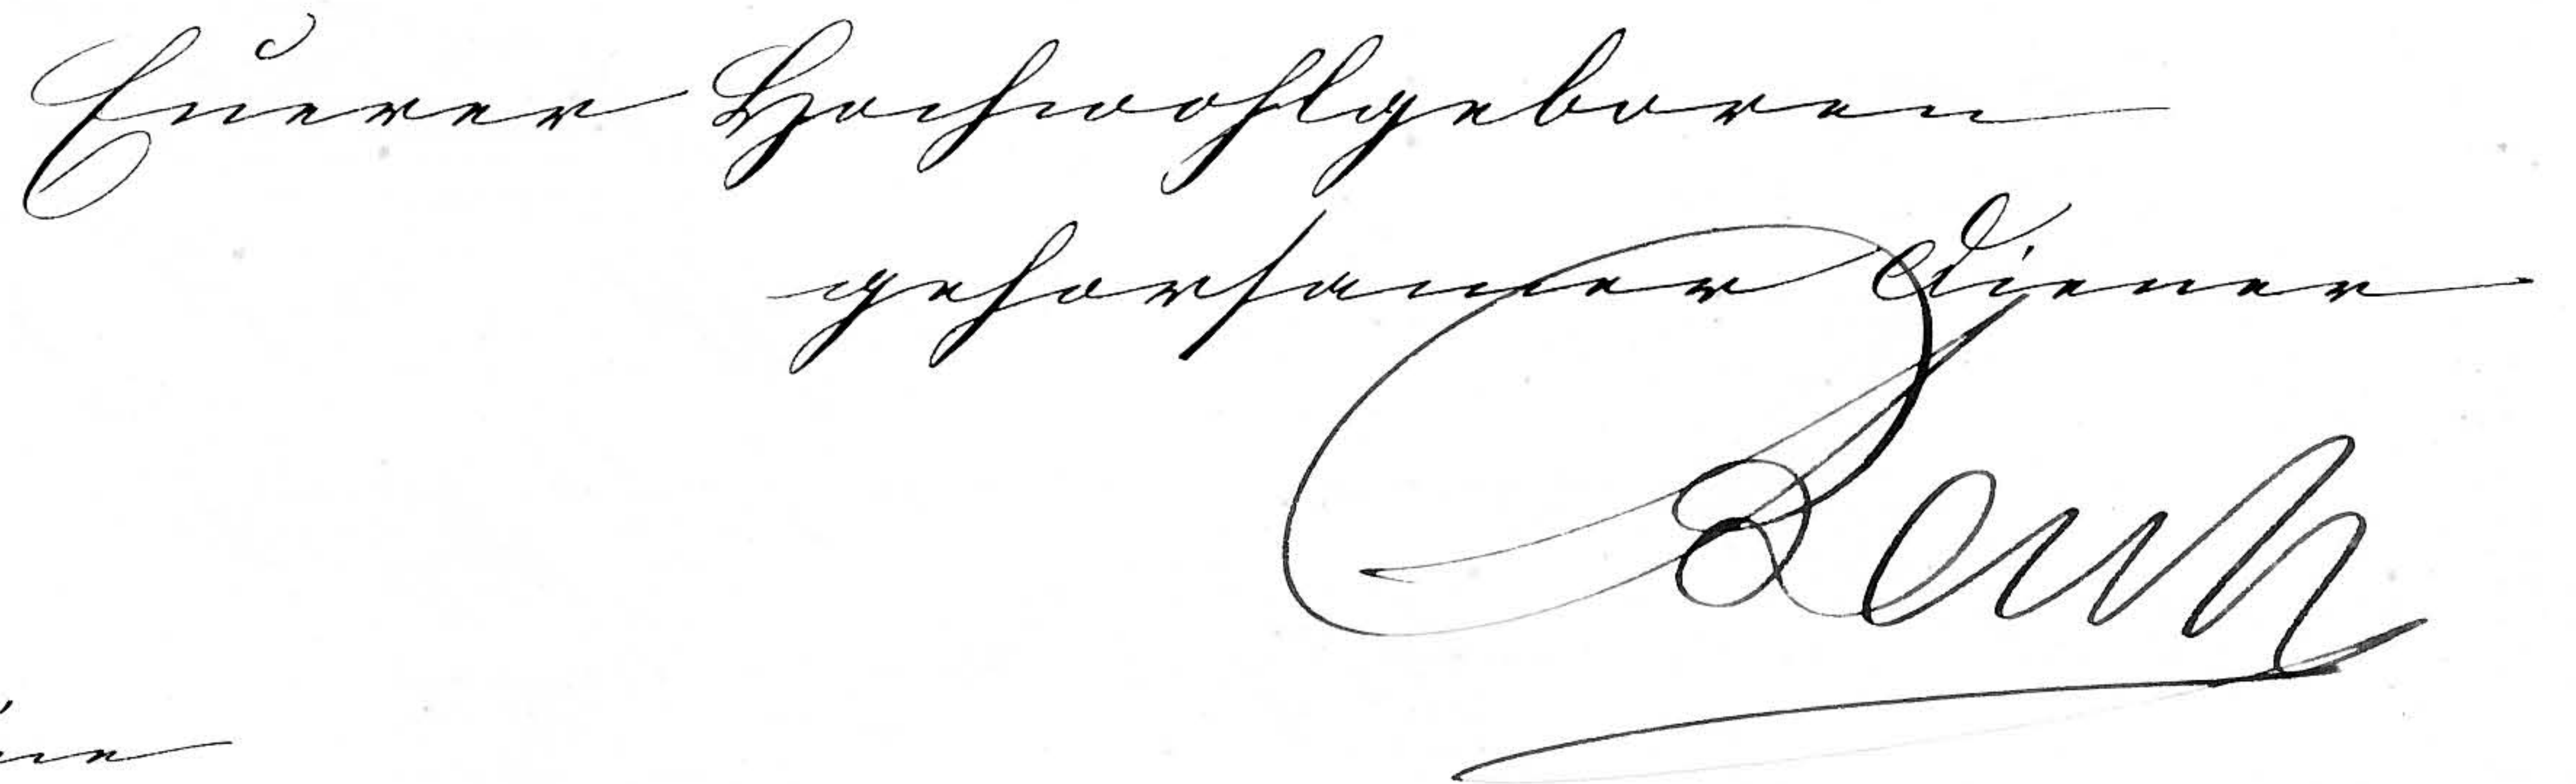 Euerer Hochwohlgeboren
gehorsamer Diener